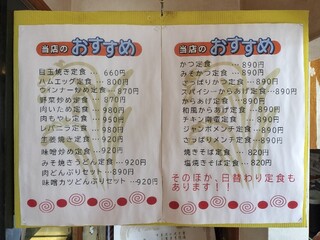 当店の おすすめ
目玉焼き定食 … 660円
ハムエッグ定食 … 800円
ウィンナー炒め定食 …870円
野菜炒め定食 … 870円
肉いため定食 … 980円
肉もやし定食 … 950円
レバニラ定食 … 980円
生姜焼き定食 …920円
味噌炒め定食 …920円
みそ焼きうどん定食 …920円
肉どんぶりセット …890円
味噌カツどんぶりセット …920円
当店の おすすめ
かつ定食 …890円
みそかつ定食 …890円
さっぱりかつ定食 …890円
スパイシーからあげ定食 …890円
からあげ定食 …890円
和風からあげ定食 …890円
チキン南蛮定食 …890円
ジャンボメンチ定食 …890円
さっぱりメンチ定食 …890円
焼きそば定食 …820円
塩焼きそば定食 …820円
そのほか、日替わり定食も
あります！！